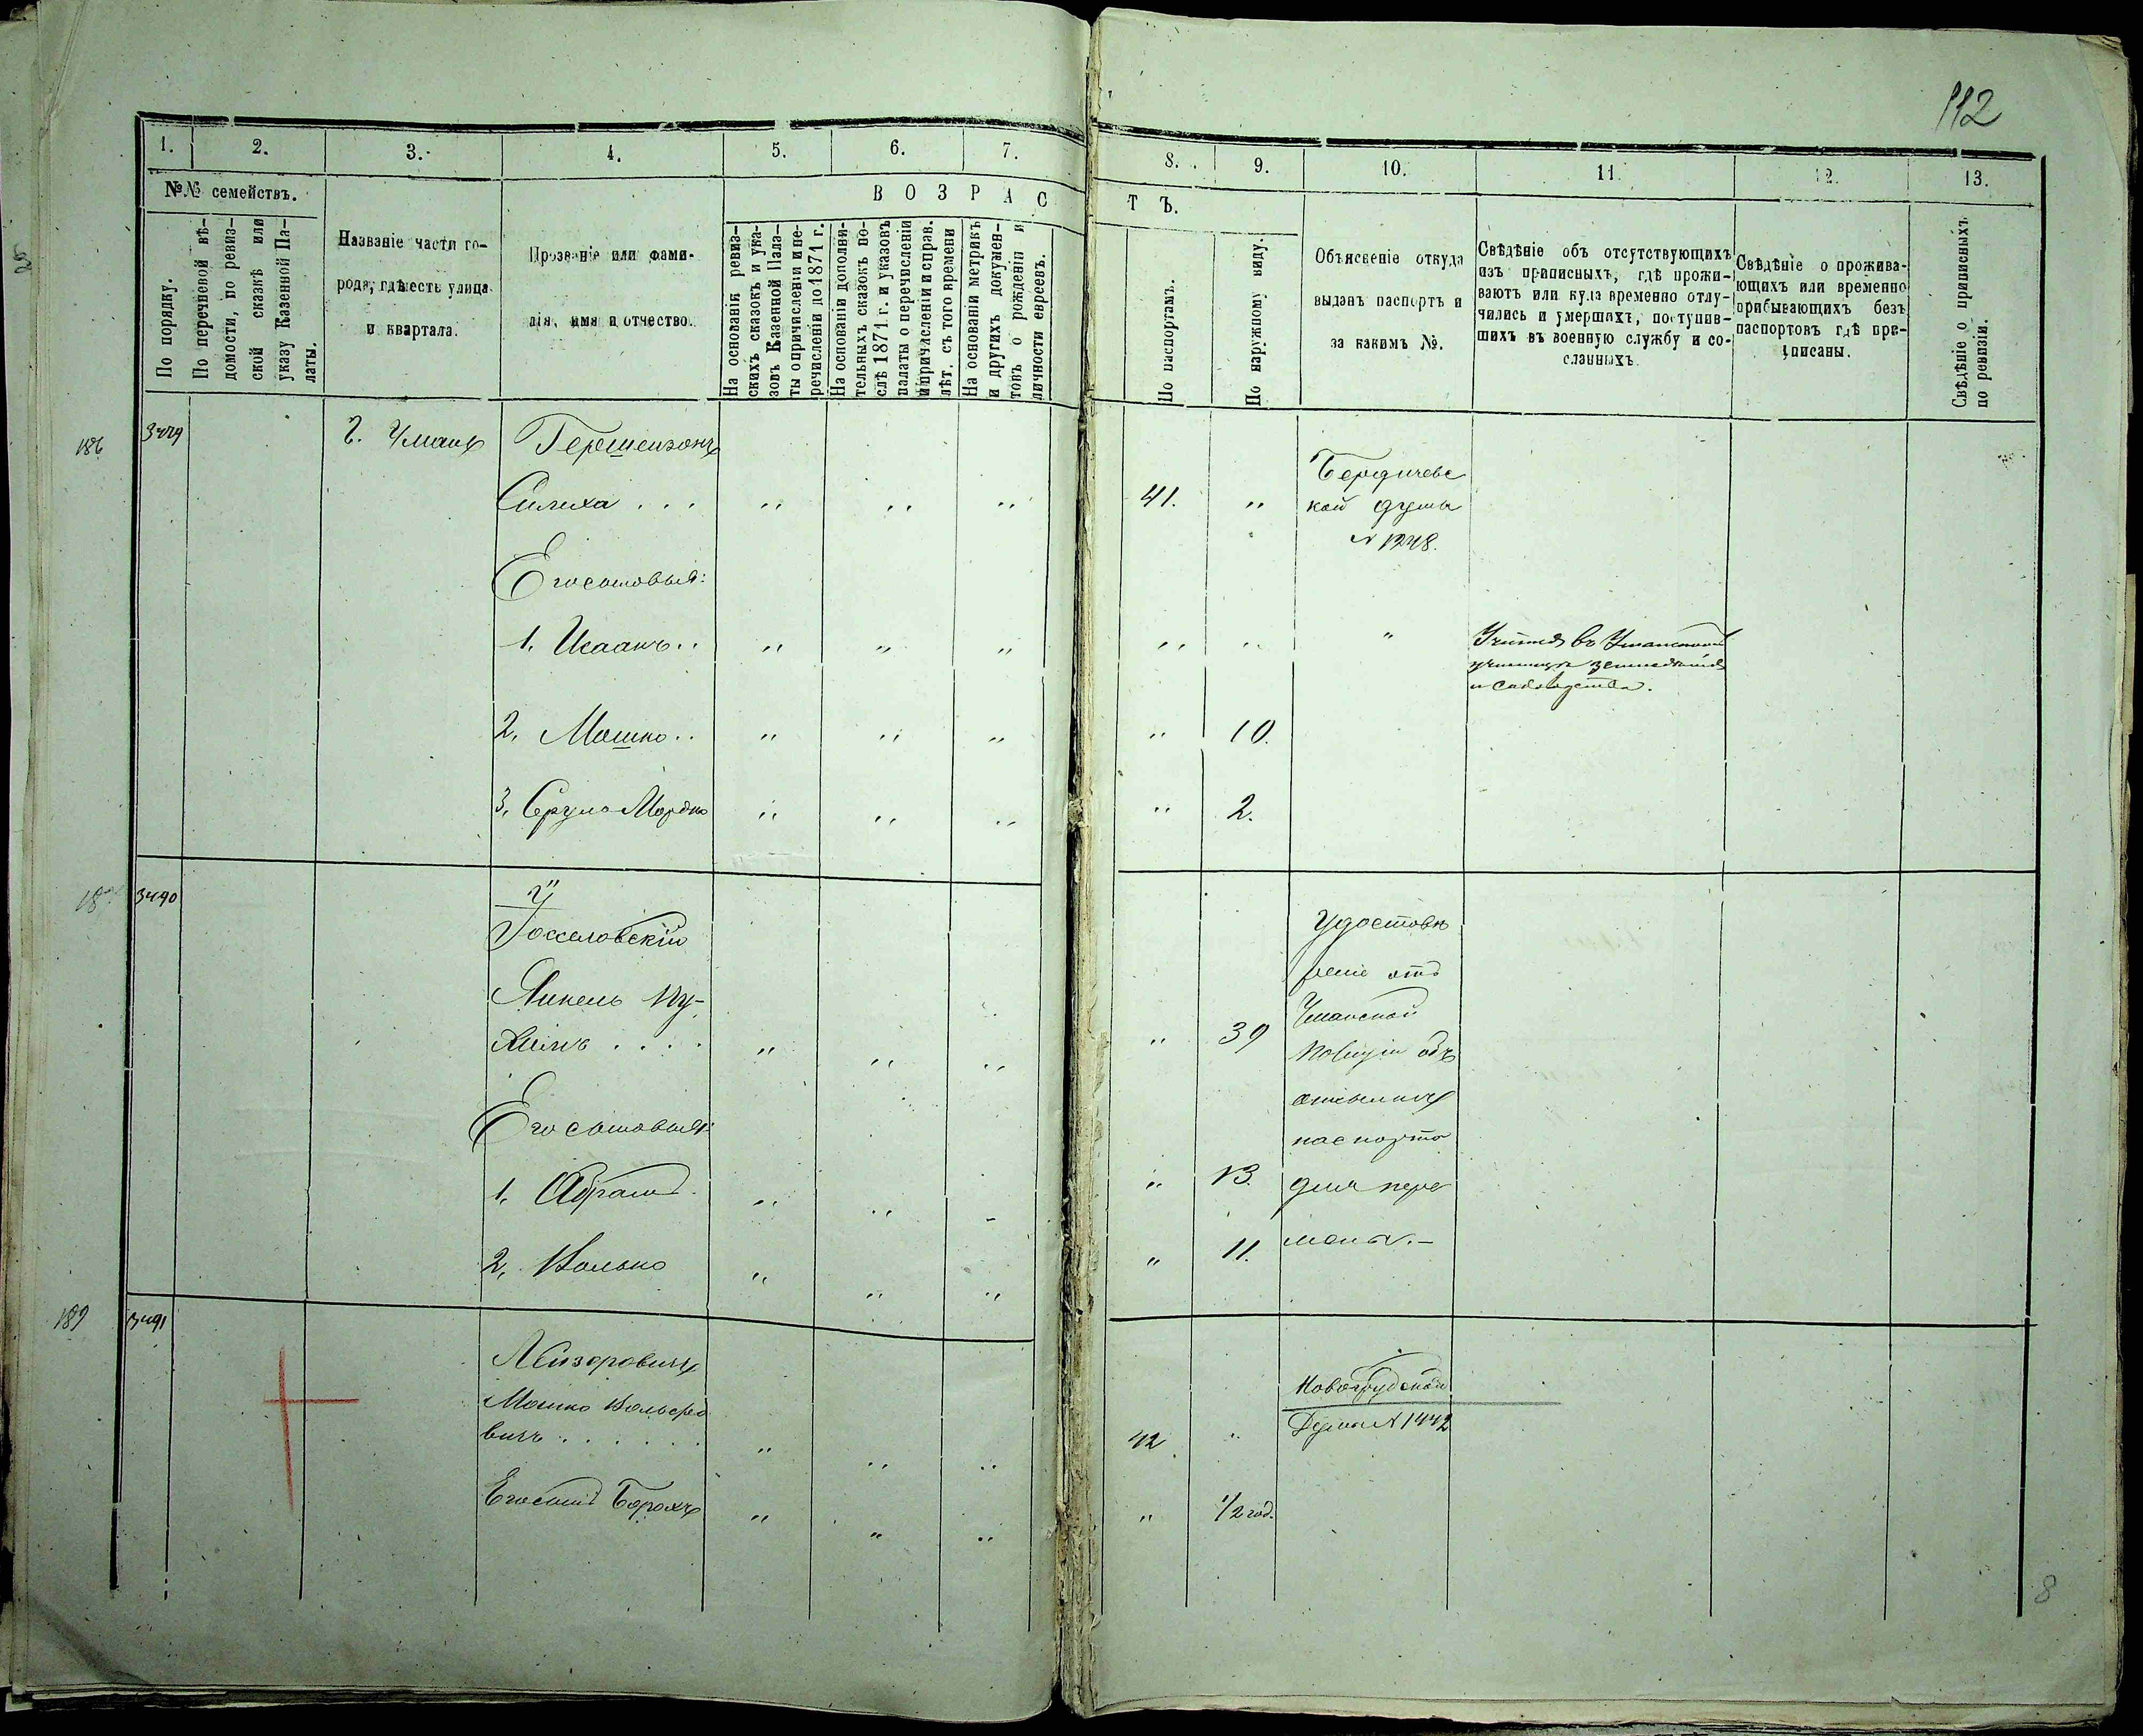 112
1. 2. 3. 4. 5. 6. 7. 8. 9. 10. 11. 12. 13.
№№ семействъ.
В О З Р А С Т Ъ.
По порядку.
По перечневой вѣ-
домости, по ревиз-
ской сказкѣ или
указу Казенной Па-
латы.
Названіе части го-
рода, гдѣ есть улица
и квартала.
Прозваніе или фами-
лія, имя и отчество.
На основаніи ревиз-
скихъ сказокъ и ука-
зовъ Казенной Пала-
ты о причисленіи и пе-
речисленіи до 1871 г.
На основаніи дополни-
тельныхъ сказокъ по-
слѣ 1871 г. и указовъ
палаты о перечисленіи
и причисленіи и справ.
лѣт. съ того времени
На основаніи метрикъ
и другихъ докумен-
товъ о рожденіи и
личности евреевъ.
По паспортамъ.
По наружному виду.
Объясненіе откуда
выданъ паспортъ и
за какимъ №.
Свѣдѣніе объ отсутствующихъ
изъ приписныхъ, гдѣ прожи-
ваютъ или куда временно отлу-
чились и умершихъ, поступив-
шихъ въ военную службу и со-
сланныхъ.
Свѣдѣніе о прожива-
ющихъ или временно
прибывающихъ безъ
паспортовъ гдѣ при-
писаны.
Свѣдѣніе о приписныхъ
по ревизіи.
186 Г. Умань Герешензонъ
Бердичевс
" " " 41. " кой думы
N 1248.
Его сыновья:
1. Исаакъ.. " " " " " "
и садоводства.
2. Мошко.. " " " " 10.
3. Сруль Мордко " " " " 2.
3490
Удостовѣ
реніе отъ
Янкель
Уманской
" " " " 39
Полиціи объ
отсылкѣ
Его сыновья:
паспорта
1. Абрамъ. " " - " 13. для пере
2. Волько " " " " 11. мены.-
189 3491
Лейзоровичъ
Новогрудской
Мошко
Думы N 1442
вичъ . . . . . . " " " 42 "
Его сынъ Борохъ " " " " 1/2 год.
8